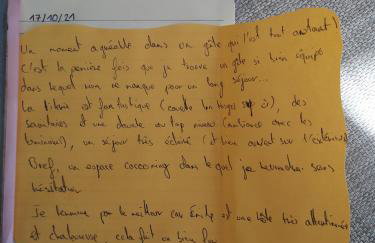 17/10/21
Un moment agréable dans un gîte qui l'est tout autant !
C'est la première fois que je trouve un gîte si bien équipé
dans lequel rien ne manque pour un long séjour...
La literie est fantastique (couette
des
sanitaires et une douche au top
(ambiance avec les
un séjour très éclairé (et bien ouvert sur l'extérieur)
Bref, un espace cocooning dans lequel je reviendrai sans
hésitation
Je termine par le meilleur car Emily est une hôte très attentionnée
et chaleureuse, cela fait un bien fou